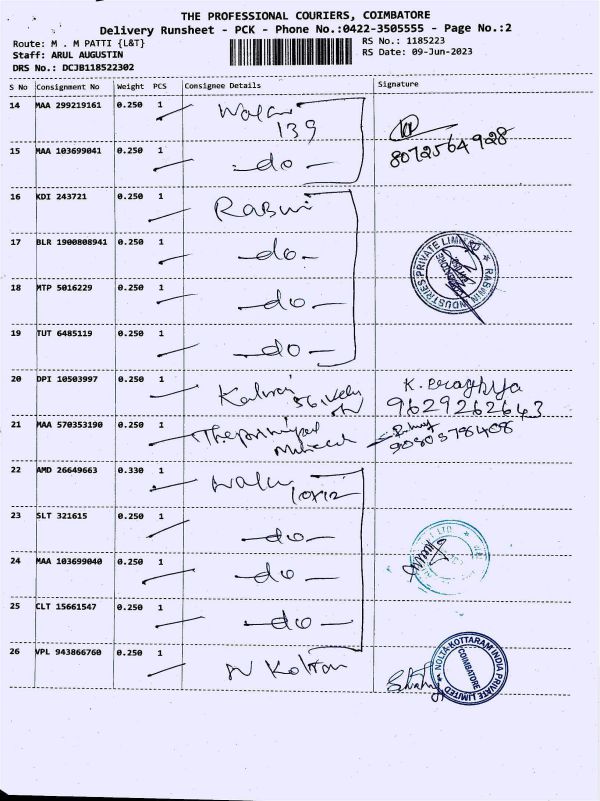 THE PROFESSIONAL COURIERS, COIMBATORE
Delivery Runsheet - PCK - Phone No.:0422-3505555 - Page No.:2
Route: M . M PATTI {L&T}
RS No.: 1185223
Staff: ARUL AUGUSTIN
RS Date: 09-Jun-2023
DRS No.: DCJB118522302
S No Consignment No Weight PCS Consignee Details Signature
14 MAA 299219161 0.250 1
139
8072564928
15 MAA 103699041 0.250 1 -do-
16 KDI 243721 0.250 1
17 BLR 1900808941 0.250 1 -do-
RABWIN INDUSTRIES PRIVATE LIMITED
COIMBATORE
18 MTP 5016229 0.250 1 -do-
19 TUT 6485119 0.250 1 -do-
20 DPI 10503997 0.250 1
9629262643
21 MAA 570353190 0.250 1 The principal
22 AMD 26649663 0.330 1
10x12
23 SLT 321615 0.250 1 -do-
LTD
24 MAA 103699040 0.250 1 -do-
25 CLT 15661547 0.250 1 -do-
26 VPL 943866760 0.250 1
NOLTA-KOTTARAM INDIA PRIVATE LIMITED
COIMBATORE